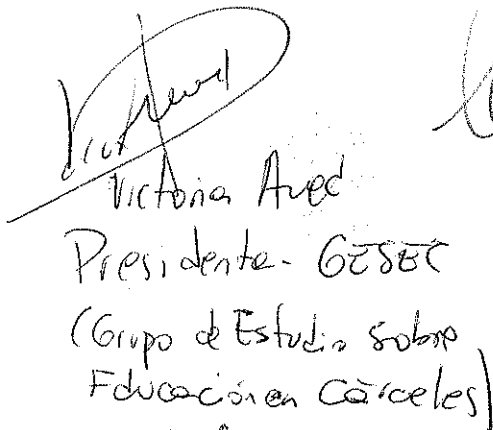 Victoria Aued
Presidenta - GESEC
(Grupo de Estudio Sobre
Educación en Cárceles)